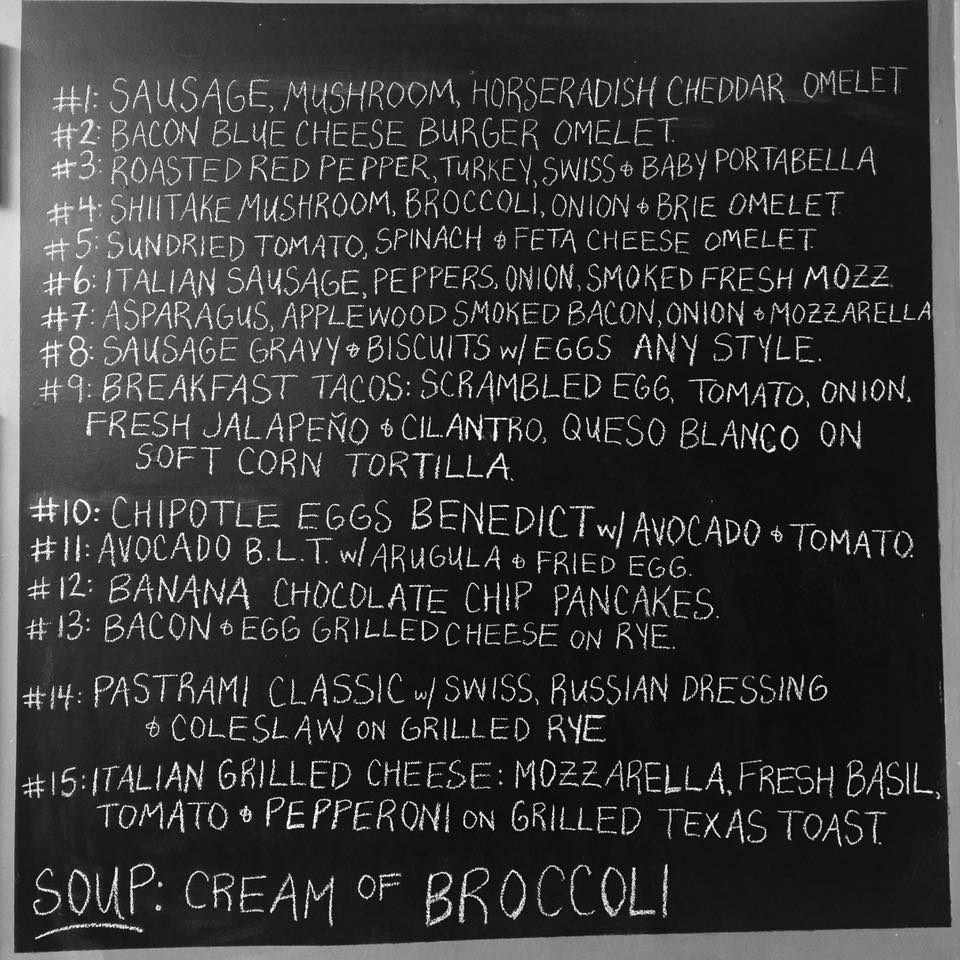 #1: SAUSAGE, MUSHROOM, HORSERADISH CHEDDAR OMELET
#2: BACON BLUE CHEESE BURGER OMELET.
#3: ROASTED RED PEPPER, TURKEY, SWISS & BABY PORTABELLA
#4: SHIITAKE MUSHROOM, BROCCOLI, ONION & BRIE OMELET
#5: SUNDRIED TOMATO, SPINACH & FETA CHEESE OMELET.
#6: ITALIAN SAUSAGE, PEPPERS, ONION, SMOKED FRESH MOZZ.
#7: ASPARAGUS, APPLEWOOD SMOKED BACON, ONION & MOZZARELLA
#8: SAUSAGE GRAVY & BISCUITS w/ EGGS ANY STYLE.
#9: BREAKFAST TACOS: SCRAMBLED EGG, TOMATO, ONION,
FRESH JALAPEÑO & CILANTRO, QUESO BLANCO ON
SOFT CORN TORTILLA.
#10: CHIPOTLE EGGS BENEDICT w/ AVOCADO & TOMATO.
#11: AVOCADO B.L.T. w/ ARUGULA & FRIED EGG.
#12: BANANA CHOCOLATE CHIP PANCAKES.
#13: BACON & EGG GRILLED CHEESE ON RYE.
#14: PASTRAMI CLASSIC w/ SWISS, RUSSIAN DRESSING
& COLESLAW ON GRILLED RYE
#15: ITALIAN GRILLED CHEESE: MOZZARELLA, FRESH BASIL,
TOMATO & PEPPERONI ON GRILLED TEXAS TOAST.
SOUP: CREAM OF BROCCOLI